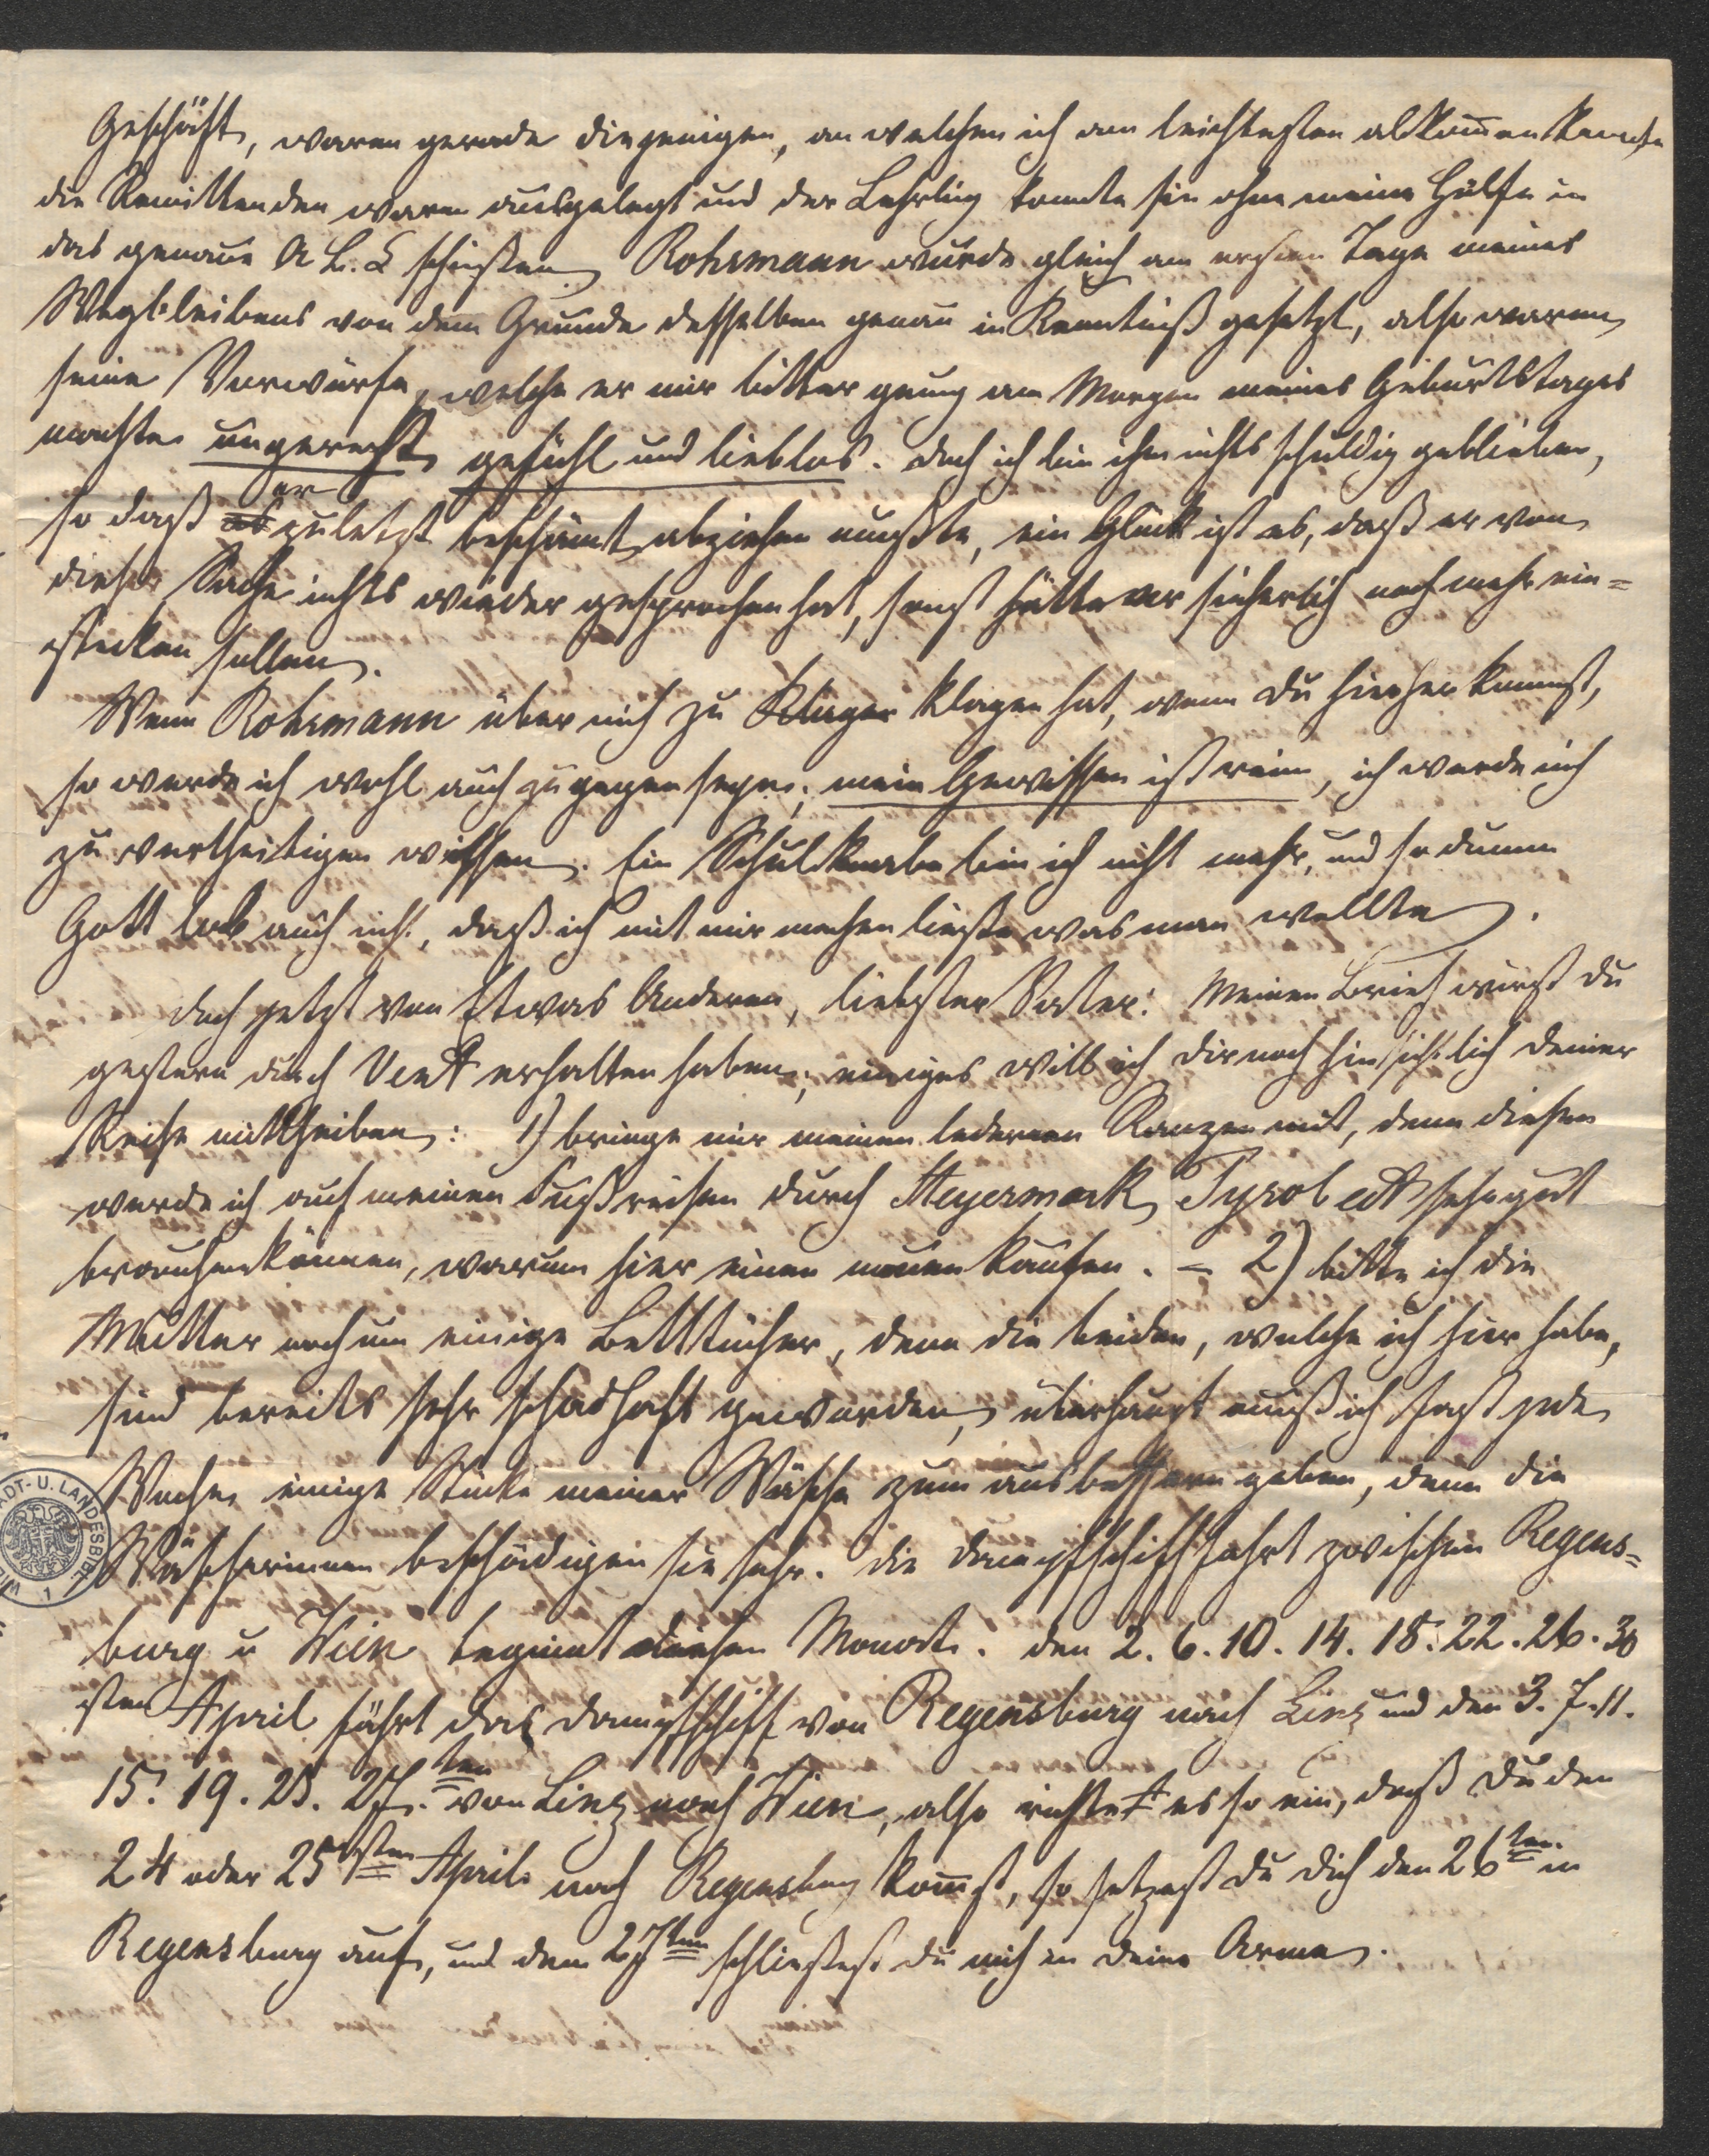 Geschäft, waren gerade diejenigen, an welchen ich am leichtesten abkom̄en konnte
die Remittenden waren ausgelegt und der Lehrling konnte sie ohne meine Hülfe in
das genaue A. B. C schießen. Rohrmann wurde gleich am ersten Tage meines
Wegbleibens von dem Grunde desselben genau in Kenntniß gesetzt, also waren
seine Vorwürfe, welche er mir bitter genug am Morgen meines Geburtstages
machte ungerecht, gefühl und lieblos. Doch ich bin ihm nichts schuldig geblieben,
so daß er zuletzt beschämt abziehen mußte, ein Glück ist es, daß er von
dieser Sache nichts wieder gesprochen hat, sonst hätte er sicherlich noch mehr ein=
stecken sollen.
Wenn Rohrmann über mich zu Klagen klagen hat, wenn Du hierher kommst,
so werde ich wohl auch zugegen seyn; mein Gewissen ist rein, ich werde mich
zu vertheitigen wissen. Ein Schulknabe bin ich nicht mehr, und so dumm
Gott lob auch nicht, daß ich mit mir machen ließe was man wollte.
Doch jetzt von Etwas Anderen, liebster Vater: Meinen Brief wirst Du
gestern durch erhalten haben; einiges will ich Dir noch hinsichtlich Deiner
Reise mittheilen: 1) bringe mir meinen ledernen Ranzen mit, denn diesen
werde ich auf meinen Fußreisen durch Steyermark, Tyrol ect sehr gut
brauchen können, warum hier einen neuen kaufen. – 2) bitte ich die
Mutter noch um einige Betttücher, denn die beiden, welche ich hier habe,
sind bereits sehr schadhaft geworden, überhaupt muß ich fast jede
Woche einige Stücke meiner Wäsche zum ausbessern geben, denn die
Wäscherinnen beschädigen sie sehr. Die Dampfschifffahrt zwischen Regens=
burg u Wien beginnt diesen Monat. Den 2. 6. 10. 14. 18. 22. 26. 30
sten April fährt das Dampfschiff von Regensburg nach Linz und den 3. 7. 11.
15. 19. 23. 27.ten von Linz nach Wien, also richte es so ein, daß Du den
24 oder 25sten April nach Regensburg kom̄st, so setzest Du Dich den 26ten in
Regensburg auf, und den 27ten schließest Du mich in Deine Arme.